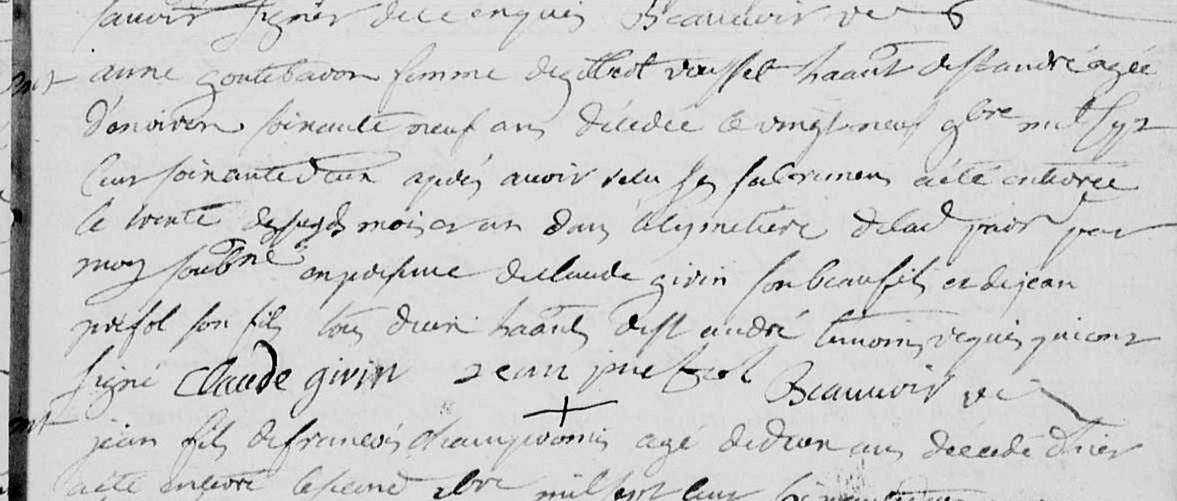 savoir signer de ce enquis Beauvoir
mt anne goutebaron femme de gilbert habant de st andré agée
d'environ soixante neuf ans décédée le vingt neuf 9bre mil sept
cent soixante d'un après avoir reçu ses sacremens a été enterrée
le trente desd mois et an dans le cymetière de lad par
moy soubné en présence de claude givin son beaufils et de jean
son fils tous deux habants de st andré temoins requis qui ont
signé claude givin jean Beauvoir
mt jean fils de francois agé de deux ans décédé d'hier
a été enterré le second xbre mil sept cent